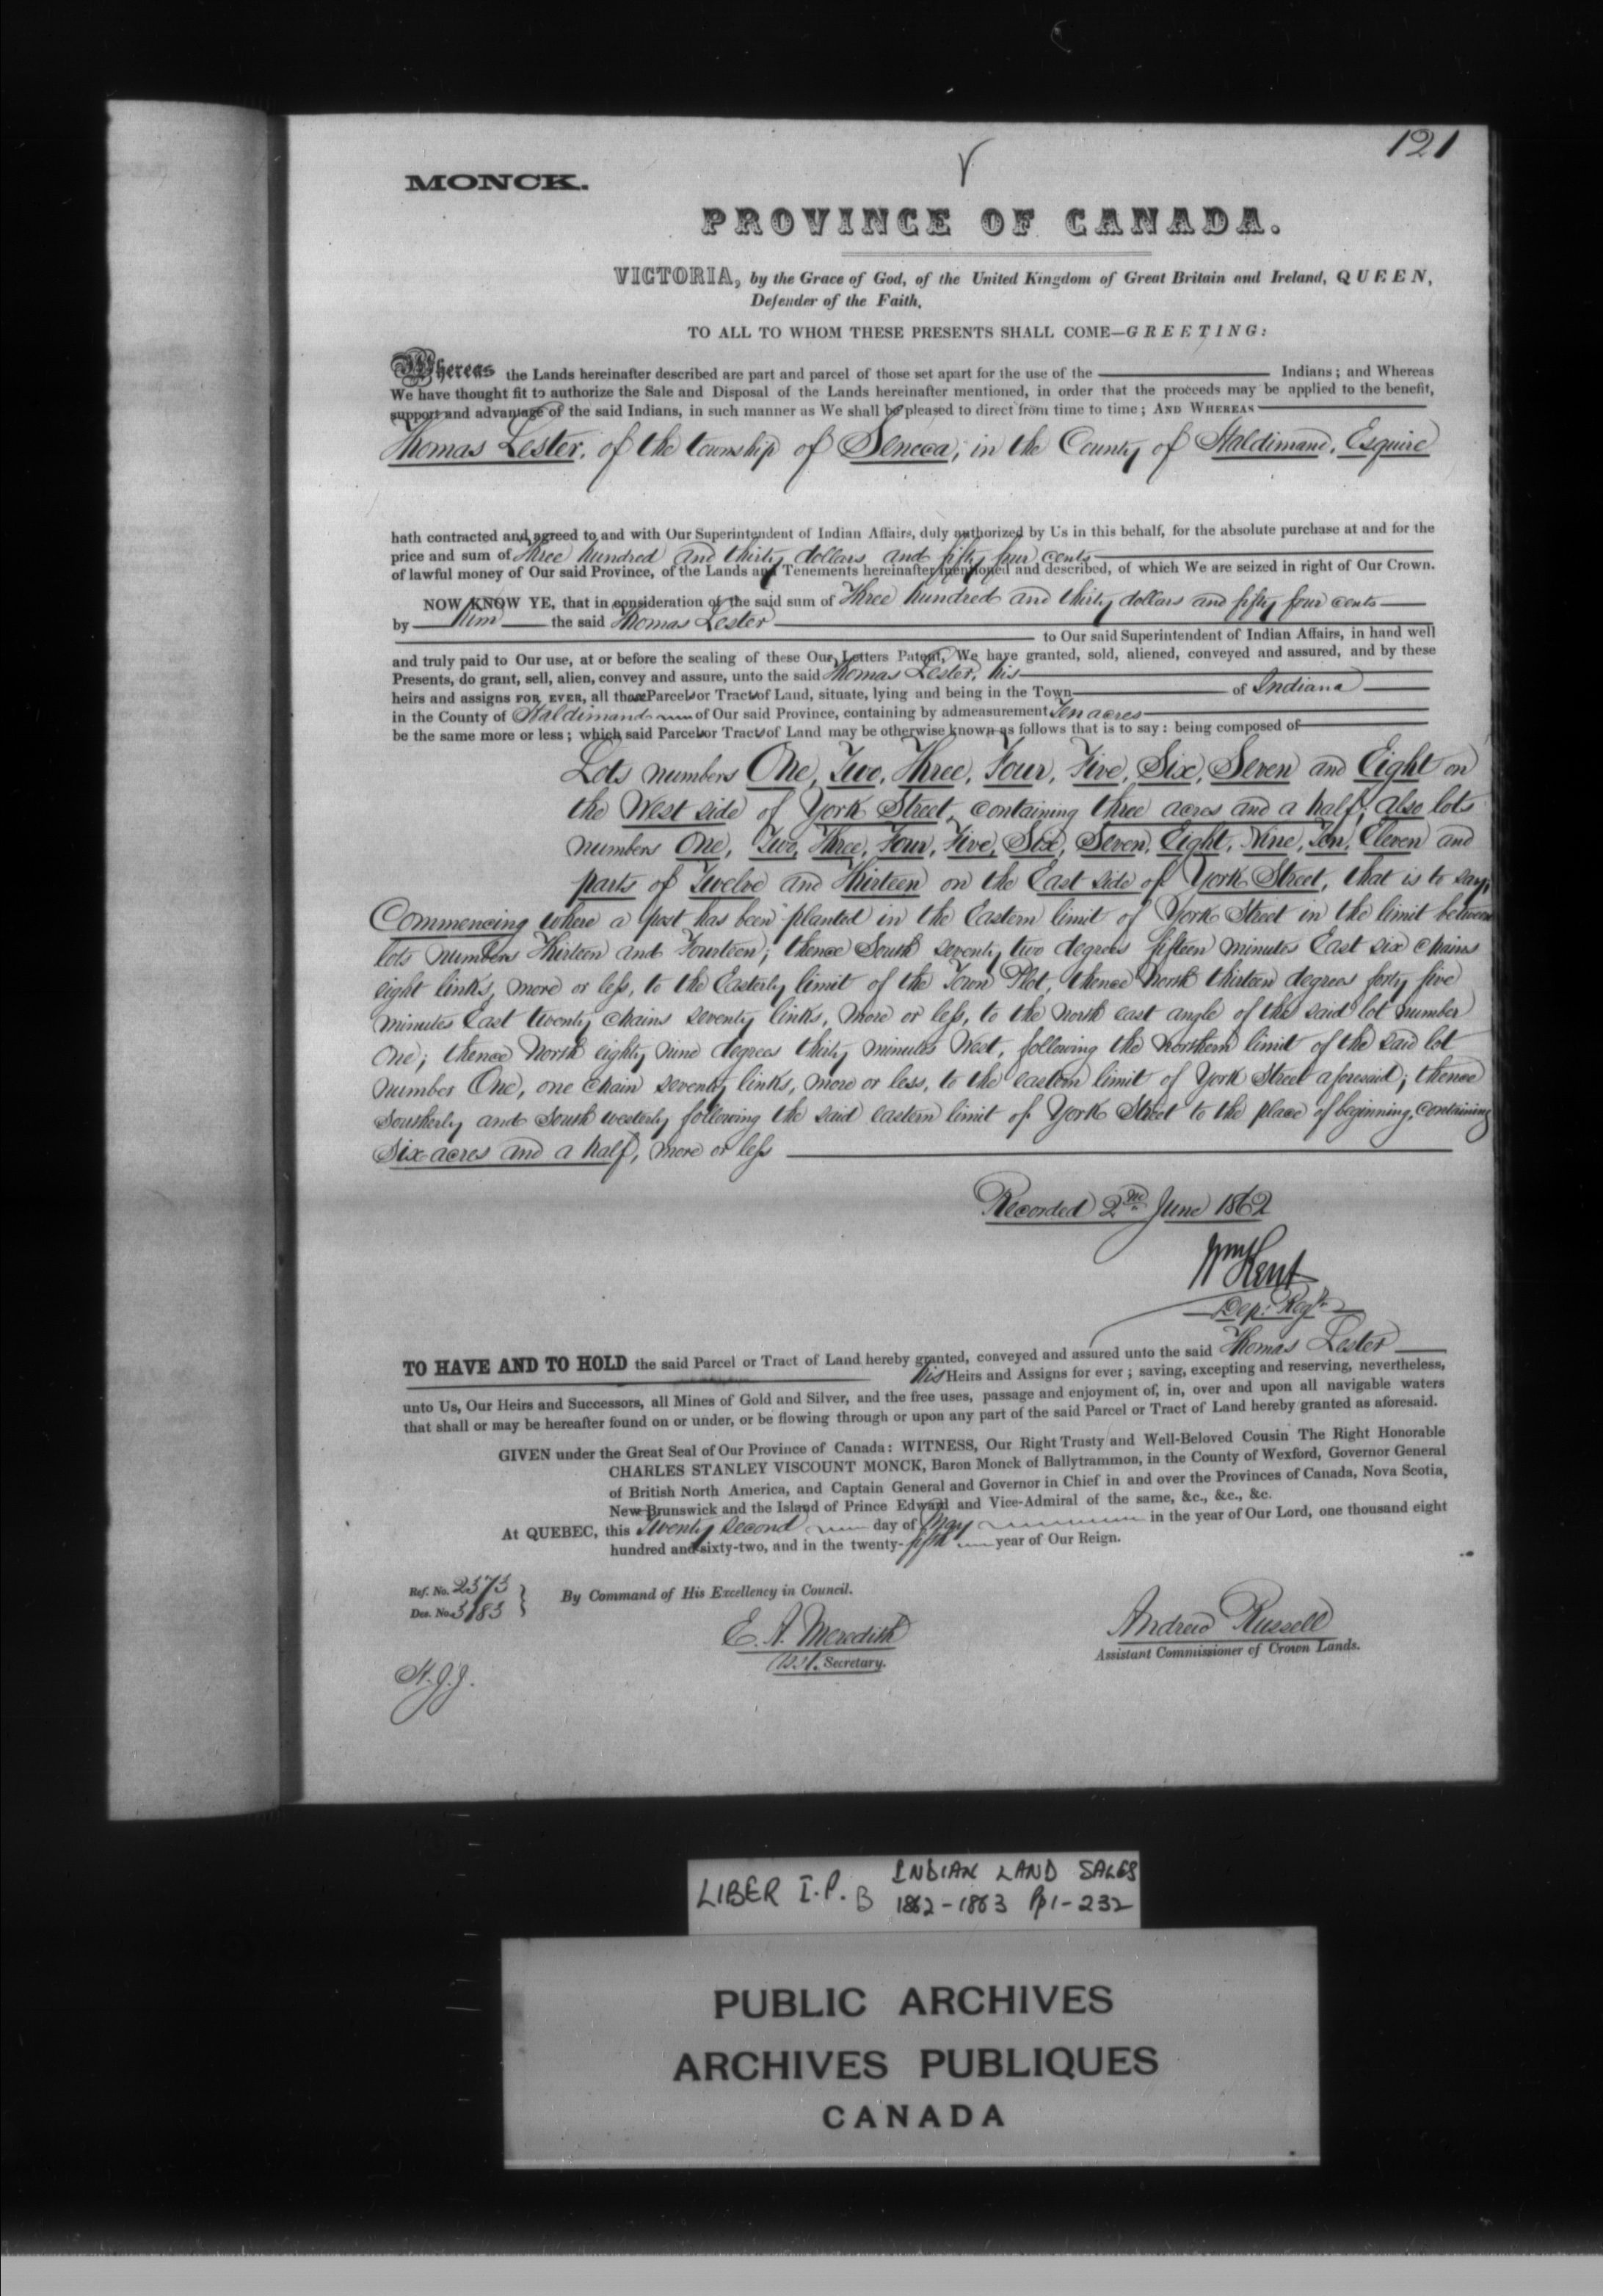 121
MONCK.
PROVINCE OF CANADA.
VICTORIA, by the Grace of God, of the United Kingdom of Great Britain and Ireland, QUEEN,
Defender of the Faith,
TO ALL TO WHOM THESE PRESENTS SHALL COME—GREETING:
Whereas the Lands hereinafter described are part and parcel of those set apart for the use of the Indians; and Whereas
We have thought fit to authorize the Sale and Disposal of the Lands hereinafter mentioned, in order that the proceeds may be applied to the benefit,
support and advantage of the said Indians, in such manner as We shall be pleased to direct from time to time; AND WHEREAS
Thomas Lester, of the township of Seneca, in the County of Haldimand, Esquire
hath contracted and agreed to and with Our Superintendent of Indian Affairs, duly authorized by Us in this behalf, for the absolute purchase at and for the
price and sum of Three hundred and thirty dollars and fifty four cents
of lawful money of Our said Province, of the Lands and Tenements hereinafter mentioned and described, of which We are seized in right of Our Crown.
NOW KNOW YE, that in consideration of the said sum of Three hundred and thirty dollars and fifty four cents
by him the said Thomas Lester
to Our said Superintendent of Indian Affairs, in hand well
and truly paid to Our use, at or before the sealing of these Our Letters Patent, We have granted, sold, aliened, conveyed and assured, and by these
Presents, do grant, sell, alien, convey and assure, unto the said Thomas Lester, his
heirs and assigns FOR EVER, all those Parcels or Tracts of Land, situate, lying and being in the Town of Indiana
in the County of Haldimand of Our said Province, containing by admeasurement Ten acres
be the same more or less; which said Parcels or Tracts of Land may be otherwise known as follows that is to say: being composed of
Lots numbers One, Two, Three, Four, Five, Six, Seven and Eight on
the West side of York Street, containing three acres and a half; also lots
numbers One, Two, Three, Four, Five, Six, Seven, Eight, Nine, Ten, Eleven and
parts of Twelve and Thirteen on the East side of York Street, that is to say;
Commencing where a post has been planted in the Eastern limit of York Street in the limit between
lots numbers Thirteen and Fourteen; thence South seventy two degrees fifteen minutes East six chains
eight links, more or less, to the Easterly limit of the Town Plot, thence North thirteen degrees forty five
minutes East twenty chains seventy links, more or less, to the north east angle of the said lot number
One; thence North eighty nine degrees thirty minutes West, following the northern limit of the said lot
number One, one chain seventy links, more or less, to the eastern limit of York Street aforesaid; thence
Southerly and South westerly following the said eastern limit of York Street to the place of beginning, containing
Six acres and a half, more or less
Recorded 2nd June 1862
Wm Kent
Dep: Regr
TO HAVE AND TO HOLD the said Parcel or Tract of Land hereby granted, conveyed and assured unto the said Thomas Lester
his Heirs and Assigns for ever; saving, excepting and reserving, nevertheless,
unto Us, Our Heirs and Successors, all Mines of Gold and Silver, and the free uses, passage and enjoyment of, in, over and upon all navigable waters
that shall or may be hereafter found on or under, or be flowing through or upon any part of the said Parcel or Tract of Land hereby granted as aforesaid.
GIVEN under the Great Seal of Our Province of Canada: WITNESS, Our Right Trusty and Well-Beloved Cousin The Right Honorable
CHARLES STANLEY VISCOUNT MONCK, Baron Monck of Ballytrammon, in the County of Wexford, Governor General
of British North America, and Captain General and Governor in Chief in and over the Provinces of Canada, Nova Scotia,
New Brunswick and the Island of Prince Edward and Vice-Admiral of the same, &c., &c., &c.
At QUEBEC, this Twenty second day of May in the year of Our Lord, one thousand eight
hundred and sixty-two, and in the twenty-fifth year of Our Reign.
Ref. No. 2373
Des. No. 3183
By Command of His Excellency in Council.
E. A. Meredith
Asst. Secretary.
Andrew Russell
Assistant Commissioner of Crown Lands.
H.J.J.
LIBER I.P. B
INDIAN LAND SALES
1862-1863 Pp 1-232
PUBLIC ARCHIVES
ARCHIVES PUBLIQUES
CANADA